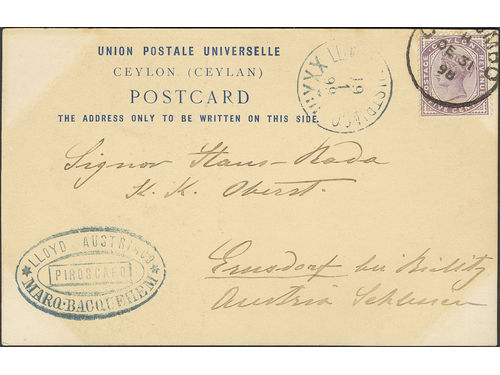 UNION POSTALE UNIVERSELLE
CEYLON (CEYLAN)
POSTCARD
THE ADDRESS ONLY TO BE WRITTEN ON THIS SIDE.
CEYLON
POSTAGE
DE 31
98
XXX
19
1
Signor Hans-Rada
K. K. Oberst.
LLOYD AUSTRIACO
PIROSCAFO
MARQ. BACQUEHEM
Ernsdorf bei Bielitz
Austria Schlesien